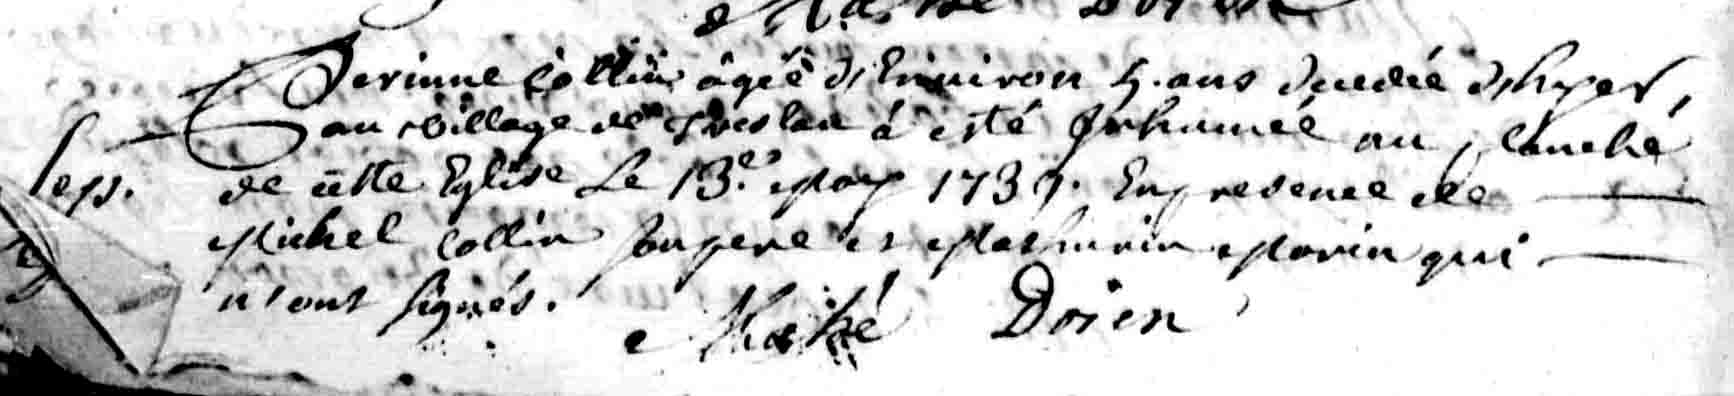 Perinne Collin âgée d'Environ 5. ans decedée d'hyer,
au village de Treslan à esté Inhumée au placché
Seps. de cette Eglise Le 13.e May 1737. En presence de
Michel Collin son pere et Mathurin Morin qui
n'ont signés.
Mahé Dorien